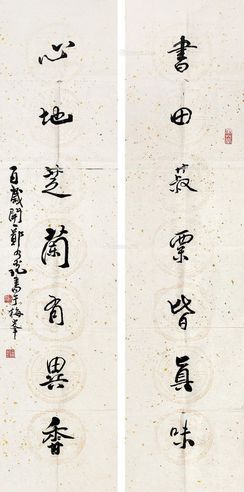 書田菽粟皆真味
心地芝蘭有異香
百歲開鄭
書于梅峯